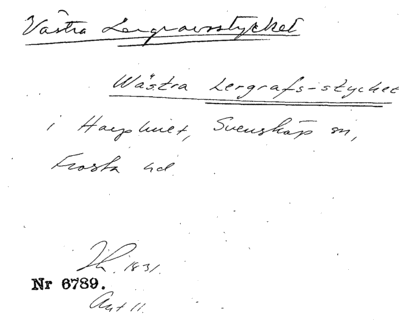 Västra Lergravsstycket
Wästra Lergrafs-stycket
i Svensköp sn,
Frosta hd.
1831.
Nr 6789.
Akt 11.